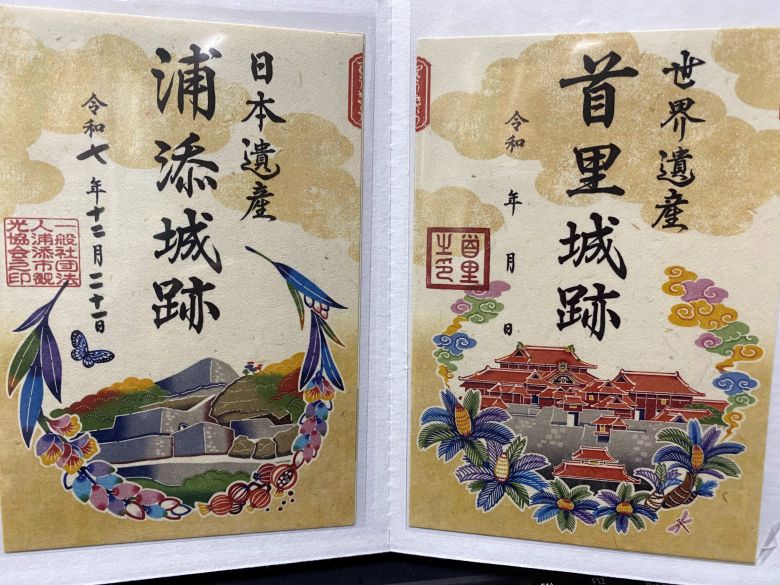 世界遺産
首里城跡
令和 年 月 日
首里
之印
日本遺産
浦添城跡
令和七年十二月二十一日
一般社団法
人浦添市観
光協会之印
F12